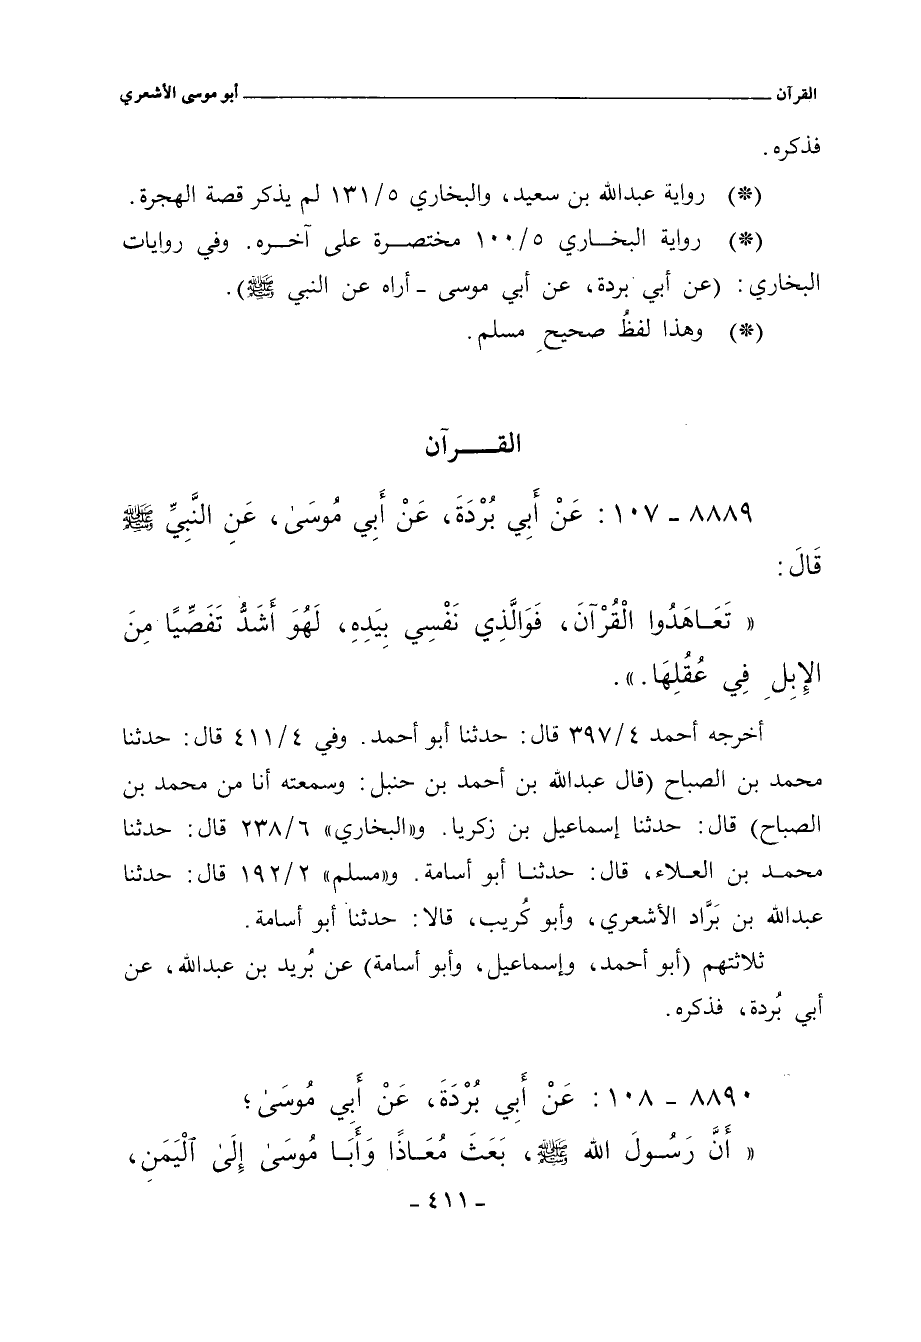 القرآن ــــــــــــــــــــ أبو موسى الأشعري
فذكره .
(*) رواية عبدالله بن سعيد، والبخاري ١٣١/٥ لم يذكر قصة الهجرة .
(*) رواية البخاري ١٠٠/٥ مختصرة على آخره. وفي روايات
البخاري: (عن أبي بردة، عن أبي موسى ـ أراه عن النبي ﷺ).
(*) وهذا لفظُ صحيحِ مسلم .
القرآن
٨٨٨٩ ـ ١٠٧ : عَنْ أَبِي بُرْدَةَ، عَنْ أَبِي مُوسَىٰ، عَنِ النَّبِيِّ ﷺ
قَالَ :
« تَعَاهَدُوا الْقُرْآنَ، فَوَالَّذِي نَفْسِي بِيَدِهِ، لَهُوَ أَشَدُّ تَفَصِّيًا مِنَ
الإِبِلِ فِي عُقُلِهَا . » .
أخرجه أحمد ٣٩٧/٤ قال: حدثنا أبو أحمد. وفي ٤١١/٤ قال: حدثنا
محمد بن الصباح (قال عبدالله بن أحمد بن حنبل: وسمعته أنا من محمد بن
الصباح) قال: حدثنا إسماعيل بن زكريا. و«البخاري» ٢٣٨/٦ قال: حدثنا
محمد بن العلاء، قال: حدثنا أبو أسامة. و«مسلم» ١٩٢/٢ قال: حدثنا
عبدالله بن بَرَّاد الأشعري، وأبو كُريب، قالا: حدثنا أبو أسامة.
ثلاثتهم (أبو أحمد، وإسماعيل، وأبو أسامة) عن بُريد بن عبدالله، عن
أبي بُردة، فذكره .
٨٨٩٠ ـ ١٠٨ : عَنْ أَبِي بُرْدَةَ، عَنْ أَبِي مُوسَىٰ؛
« أَنَّ رَسُولَ الله ﷺ، بَعَثَ مُعَاذًا وَأَبَا مُوسَىٰ إِلَىٰ ٱلْيَمَنِ،
ـ ٤١١ ـ